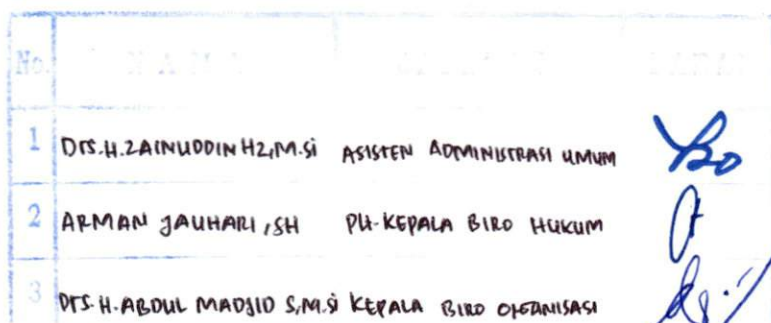 No.
1 Drs.H.ZAINUDDIN HZ,M.Si ASISTEN ADMINISTRASI UMUM
2 ARMAN JAUHARI, SH Plt. KEPALA BIRO HUKUM
3 Drs. H. ABDUL MADJID S,M.Si KEPALA BIRO ORGANISASI